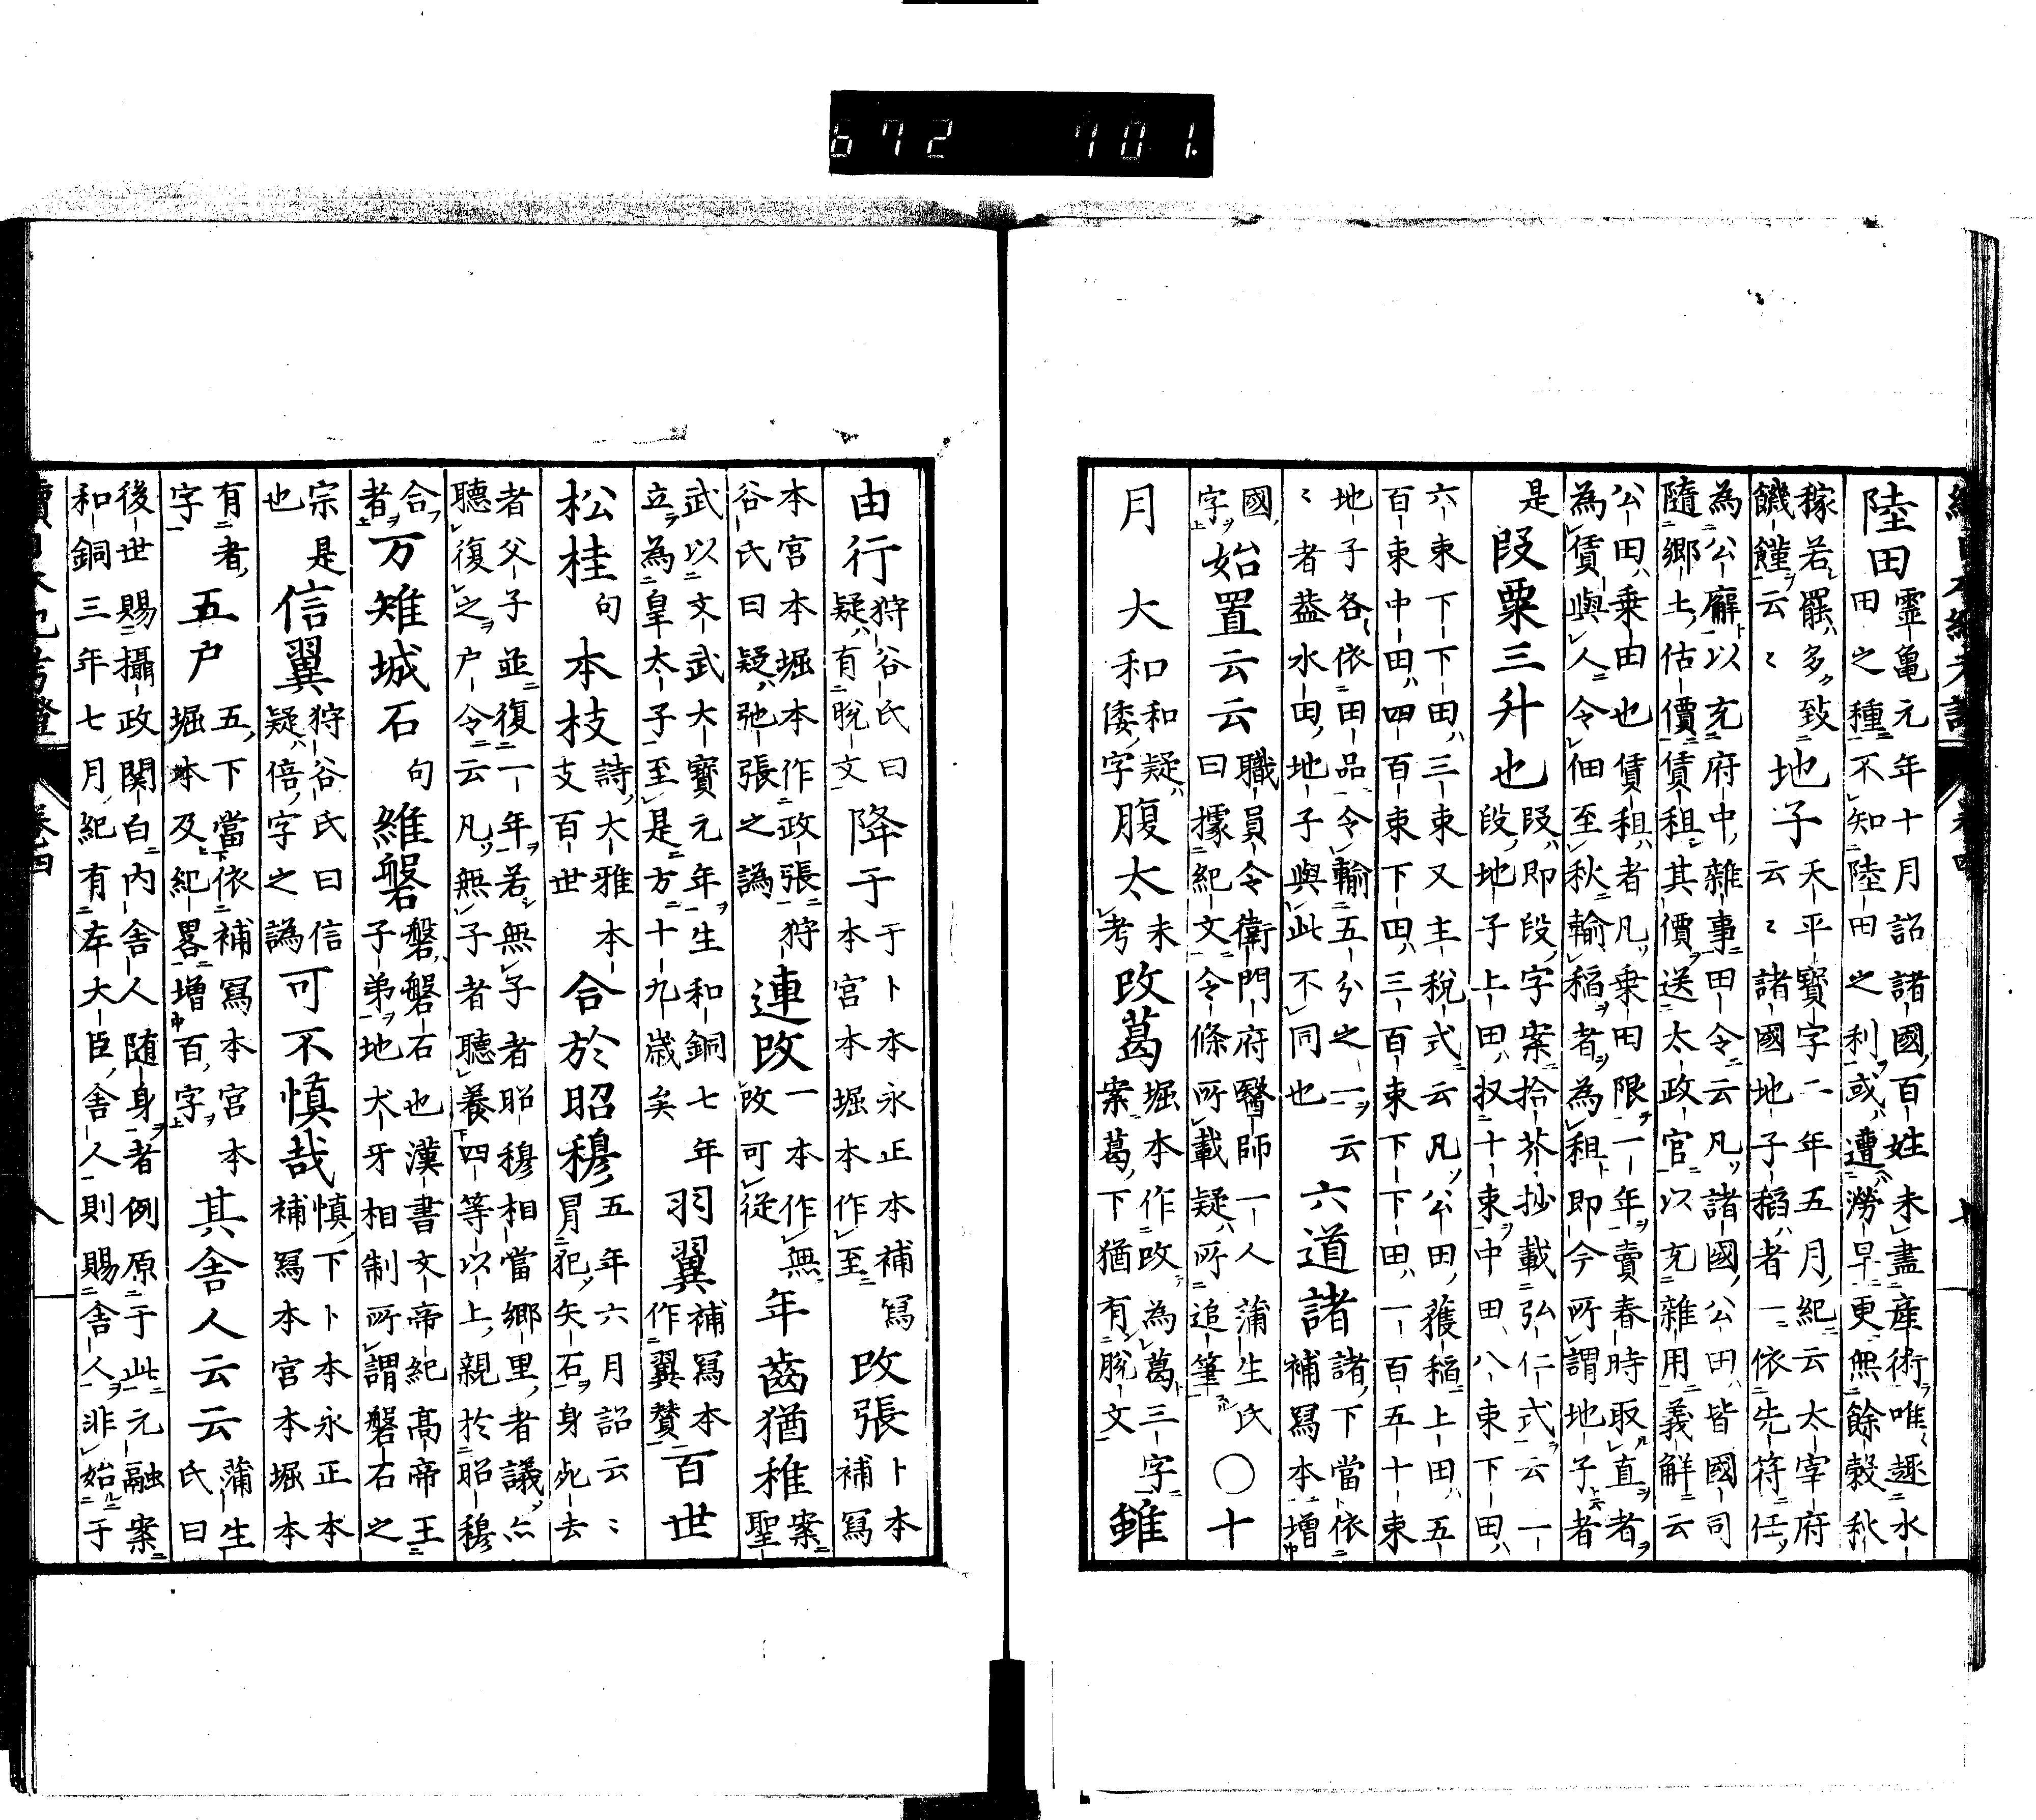 續日本紀考證 卷四 十
陸田 靈龜元年十月詔諸國百姓未盡産術唯趣水田之種不知陸田之利或遭澇旱更無餘穀秋
稼若罷多致饑饉云〻 地子 天平寶字一年五月紀云太宰府云〻諸國地子稻者一依先符任
為公廨以充府中雜事田令云凡諸國公田皆國司隨郷土估價賃租其價送太政官以充雜用義解云
公田乗由也賃租者凡乗田限一年賣春時取直者為賃與人令佃至秋輸稻者為租即今所謂地子者
是 段粟三升也 段即段字案拾芥抄載弘仁式云一段地子上田扠十束中田八束下田
六束下下田三束又主税式云凡公田獲稻上田五百束中田四百束下田三百束下下田一百五十束
地子各依田品令輸五分之一云〻者葢水田地子與此不同也 六道諸 諸下當依補冩本増
國字 始置云云 職員令衛門府醫師一人蒲生氏曰據紀文令條所載疑所追筆 〇十
月 大和 和疑倭字 腹太 未考 改葛 堀本作改為葛三字案葛下猶有脱文 雖
由行 狩谷氏曰疑有脱文 降于 于卜本永正本補冩本宮本堀本作至 改張 卜本補冩
本宮本堀本作政張狩谷氏曰疑弛張之譌 連改 一本作無改可從 年齒猶稚 案聖
武以文武大寶元年生和銅七年立為皇太子至是方十九歳矣 羽翼 補冩本作翼賛 百世
松桂 句 本枝 詩大雅本支百世 合於昭穆 五年六月詔云〻冒犯矢石身死去
者父子並復一年若無子者昭穆相當郷里者議亦聽復之户令云凡無子者聽養四等以上親於昭穆
合者 万雉城石 句 維磐 磐磐石也漢書文帝紀高帝王子弟地犬牙相制所謂磐石之
宗是也 信翼 狩谷氏曰信疑倍字之譌 可不慎哉 慎下卜本永正本補冩本宮本堀本
有者字 五户 五下當依補冩本宮本堀本及紀畧増百字 其舎人云云 蒲生氏曰
後世賜攝政関白内舎人随身者例原于此元融案和銅三年七月紀有左大臣舎人則賜舎人非始于
續日本紀考證 卷四 八